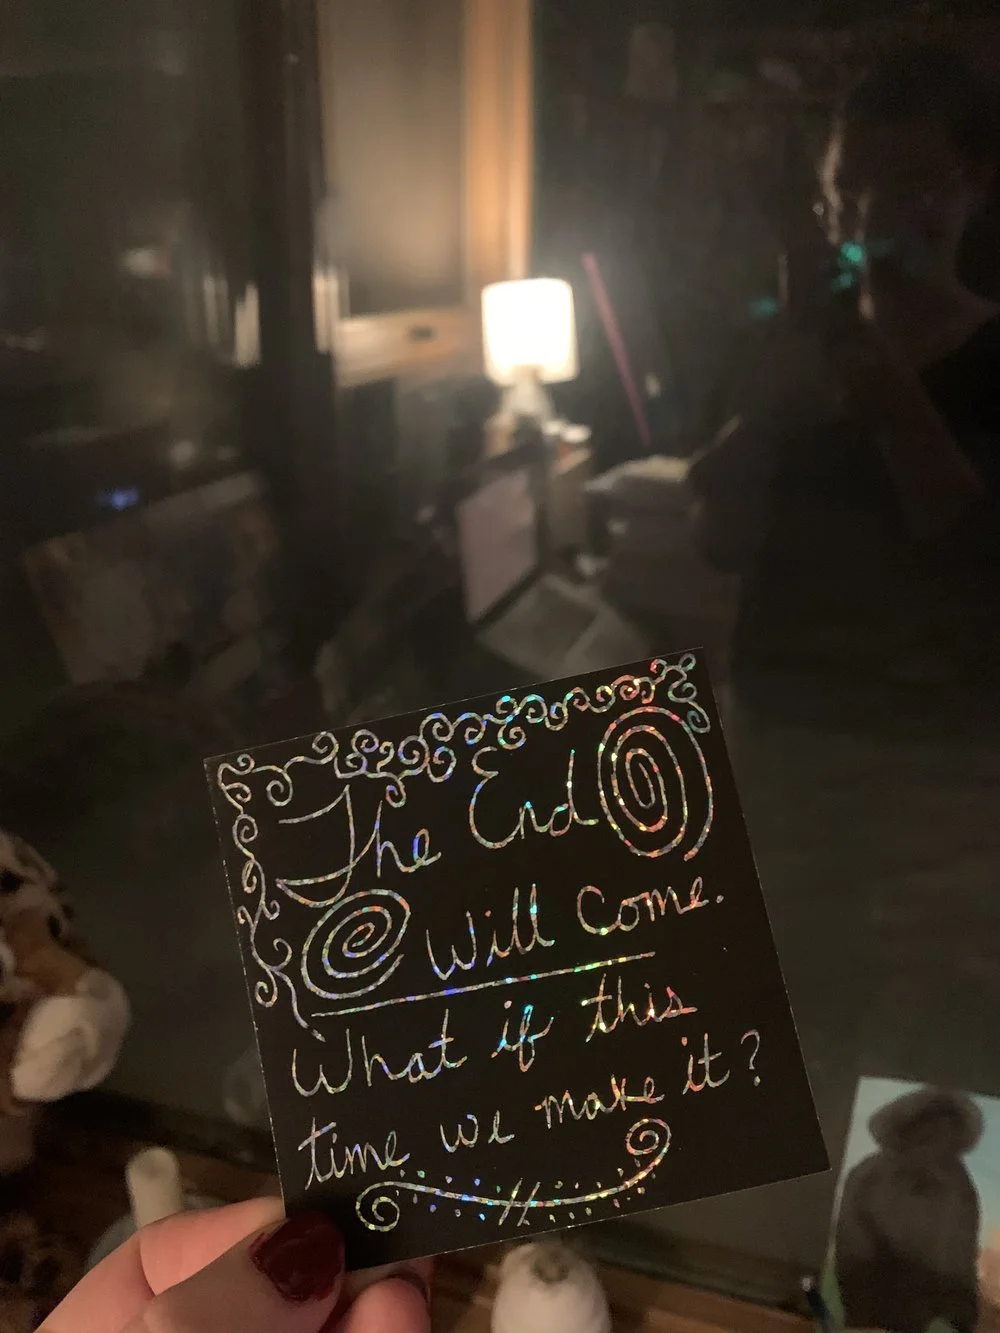 The End
Will Come.
What if this
time we make it?